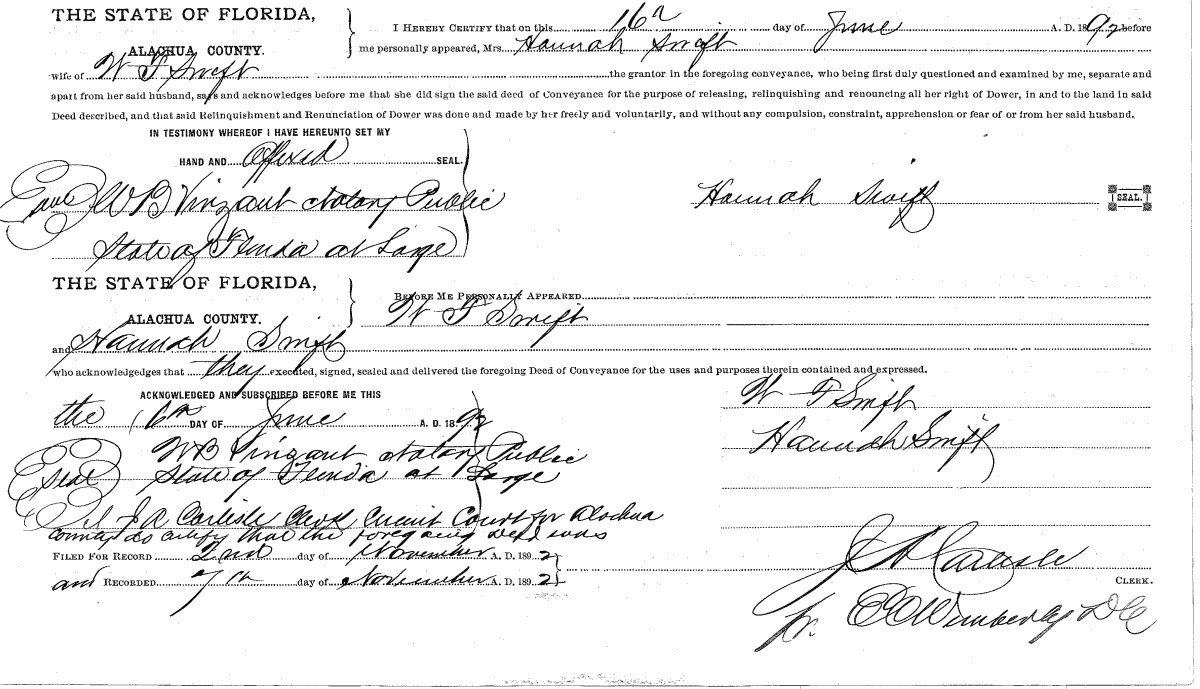 THE STATE OF FLORIDA,
ALACHUA COUNTY.
I HEREBY CERTIFY that on this 16th day of June A. D. 1892 before
me personally appeared, Mrs. Hannah Swift
wife of W F Swift the grantor in the foregoing conveyance, who being first duly questioned and examined by me, separate and
apart from her said husband, says and acknowledges before me that she did sign the said deed of Conveyance for the purpose of releasing, relinquishing and renouncing all her right of Dower, in and to the land in said
Deed described, and that said Relinquishment and Renunciation of Dower was done and made by her freely and voluntarily, and without any compulsion, constraint, apprehension or fear of or from her said husband.
IN TESTIMONY WHEREOF I HAVE HEREUNTO SET MY
HAND AND affixed SEAL.
Seal W B Vinzant Notary Public
State of Florida at Large
Hannah Swift SEAL.
THE STATE OF FLORIDA,
ALACHUA COUNTY.
BEFORE ME PERSONALLY APPEARED
W F Swift
and Hannah Swift
who acknowledgedges that they executed, signed, sealed and delivered the foregoing Deed of Conveyance for the uses and purposes therein contained and expressed.
ACKNOWLEDGED AND SUBSCRIBED BEFORE ME THIS
the 16th DAY OF June A. D. 1892
W F Swift
Hannah Swift
W B Vinzant Notary Public
Seal State of Florida at Large
J A Carlisle Clerk Circuit Court for Alachua
County do certify that the foregoing Deed was
FILED FOR RECORD 2nd day of November A. D. 1892
and RECORDED 7th day of November A. D. 1892
J A Carlisle
CLERK.
pr. Wimberly D C